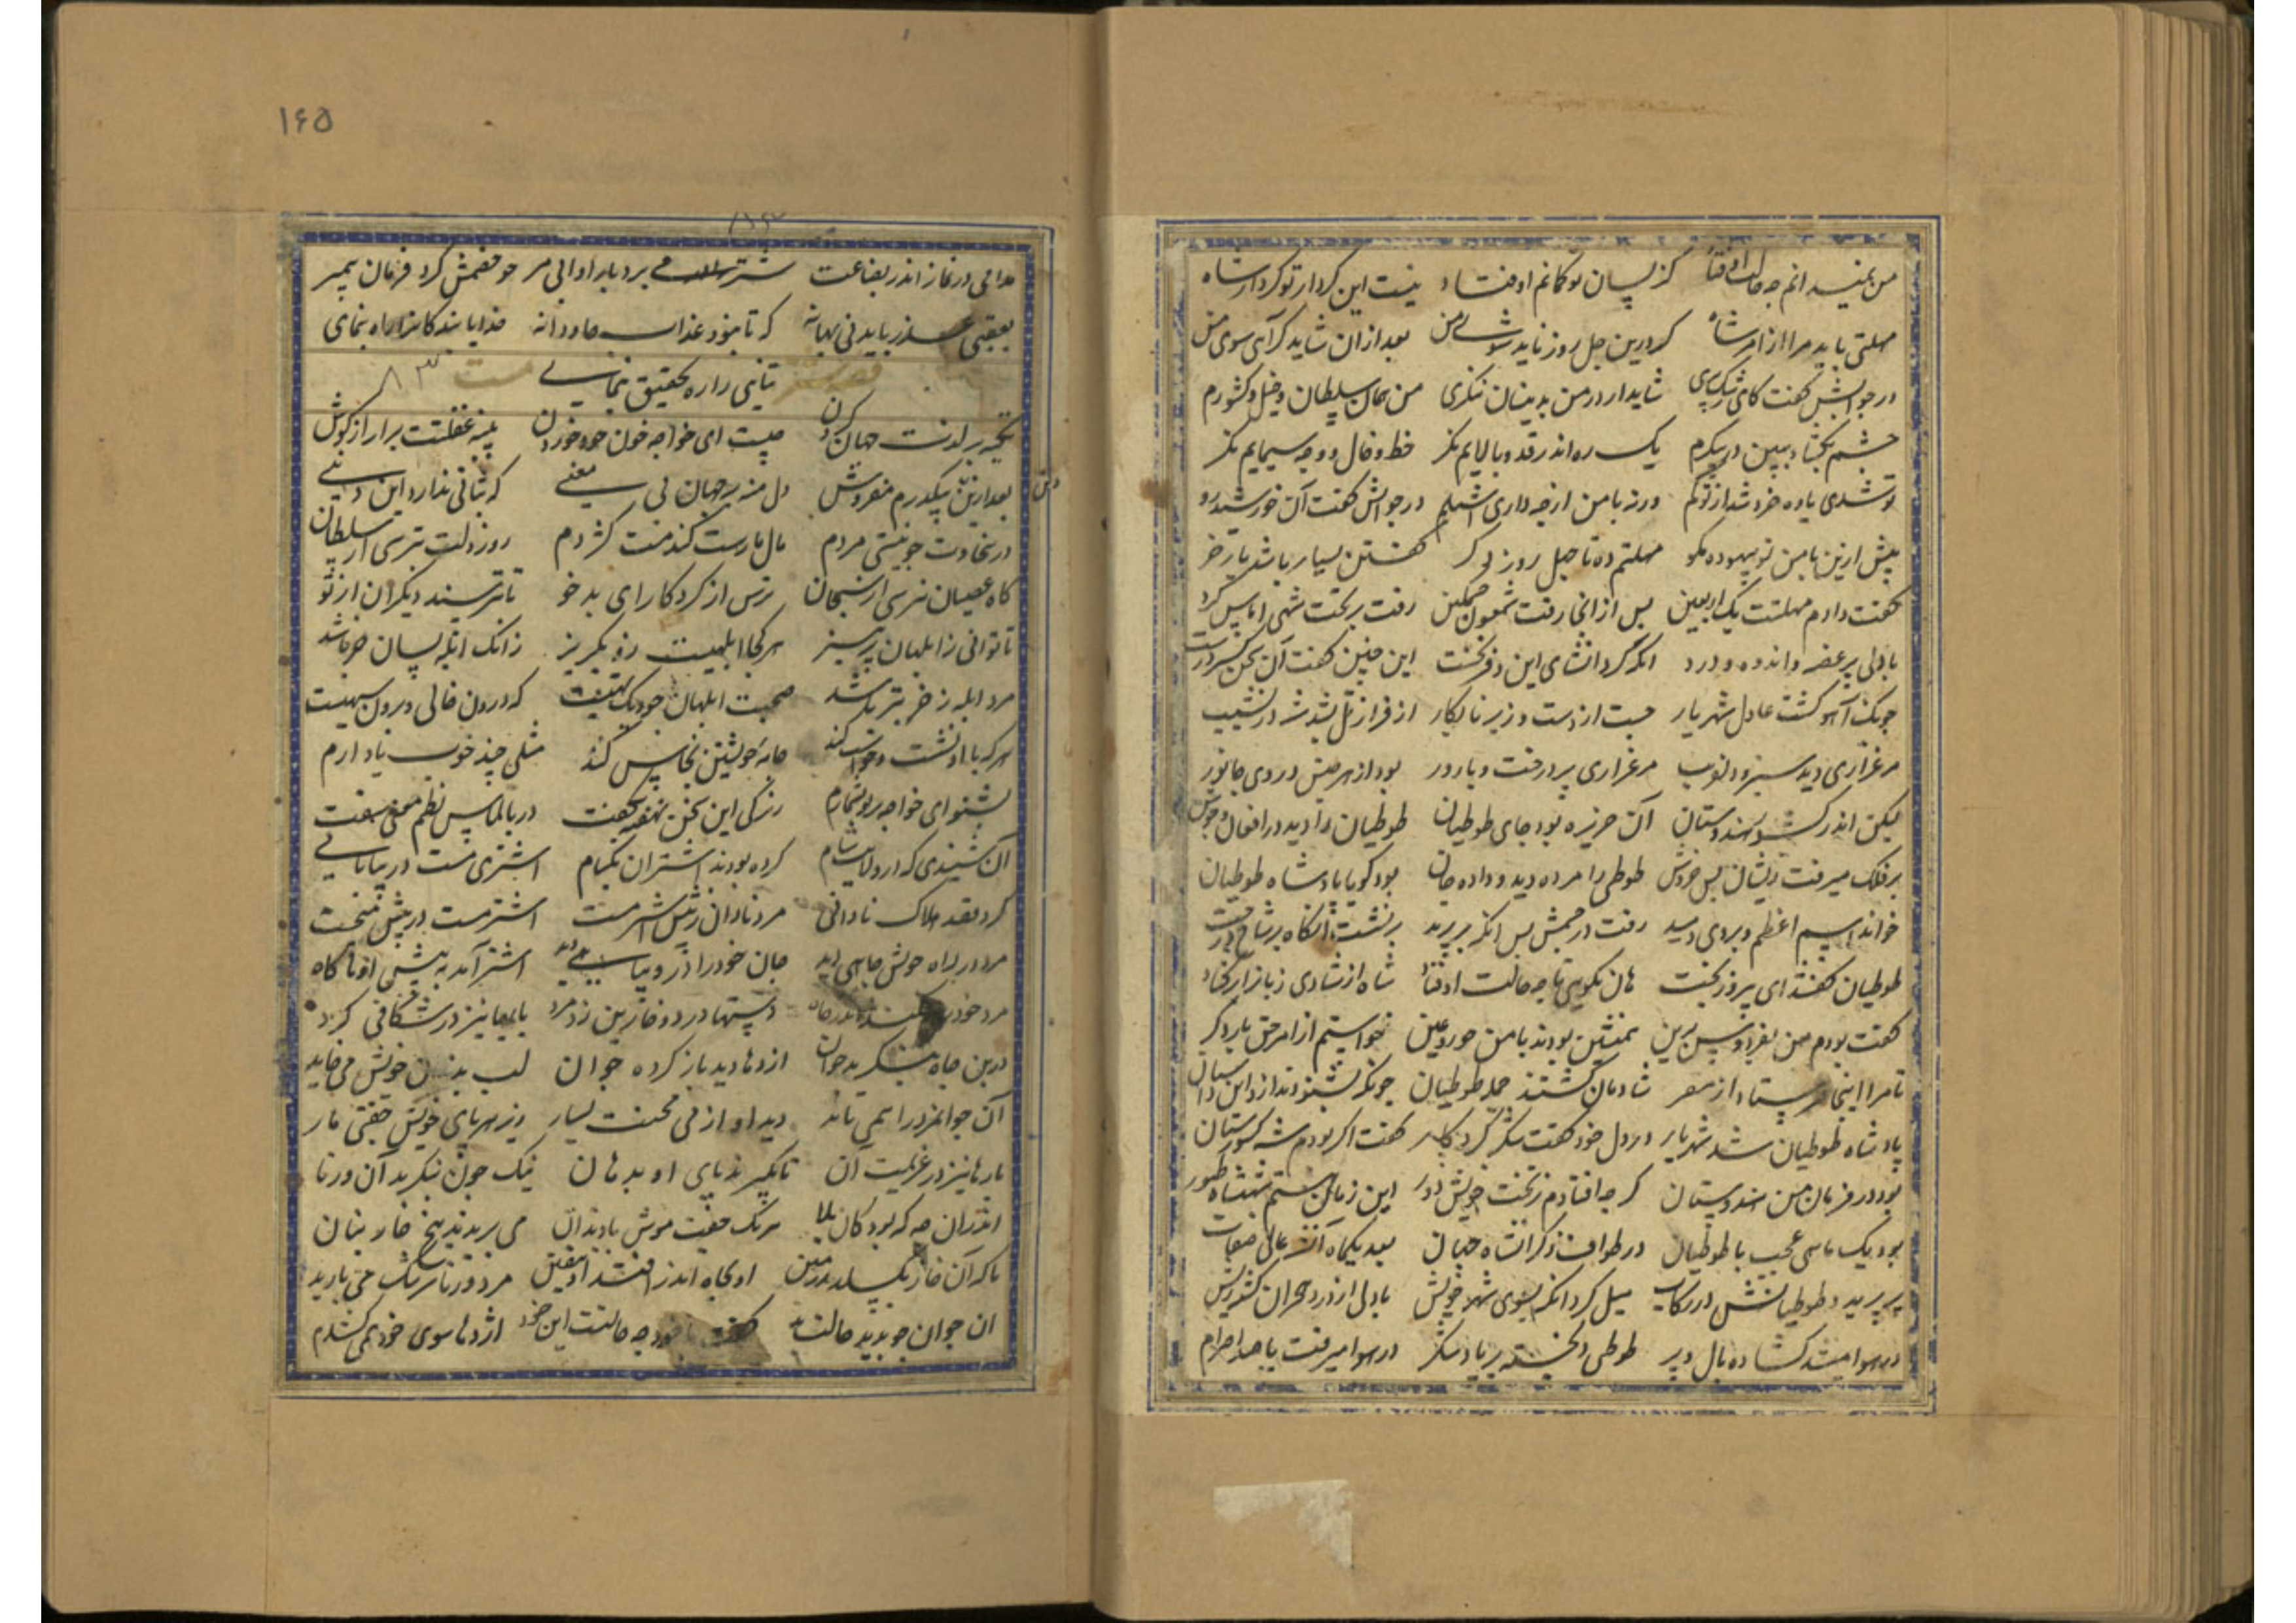 کز پسان تو کمانم اوفتاد نیست این کردار تو کردار شاه
مهلتی باید مرا از امر شاه که درین چل روز ناید شوی من بعد از آن شاید کر آی سوی من
در جوابش کفت کای رشک پری شاید ار در من بدینسان ننکری من همان سلطان و خیل و کشورم
چشم بکشا و ببین در پیکرم یک ره اندر قد و بالایم نکر خط و خال و وجه سیمایم نکر
تو شدی یا ده خرد شد از توکم ورنه با من از چه داری اشتلم در جوابش کفت آن خورشید رو
پیش ازین با من تو بیهوده مکو مهلتم ده تا چهل روز دکر کفتن بسیار باشد بار خر
کفت دادم مهلتت یک اربعین پس از آنجا رفت شمعون رفت بر تخت شهی
با دلی پر غصه و اندوه و درد انکه کرد انشای این دفتر نخست این چنین کفت آن سخن
چونک آهو کشت عادل شهریار جست از دست وزیر نابکار از فراز تل بشد در نشیب
مرغزاری دید سبز و دلفریب مرغزاری پر درخت و بارور بود از هر جنس در وی جانور
لیکن اندر کشور هندوستان آن جزیره بود جای طوطیان طوطیان را دید در افغان و جوش
بر فلک میرفت زیشان بس خروش طوطی را مرده دید و داده جان بود کویا پادشاه طوطیان
خواند اسم اعظم و بروی دمید رفت در جسمش پس انکه بر پرید برنشست آنکاه بر شاخ درخت
طوطیان کفتند ای پیروز بخت هان نکویی تا چه حالت اوفتاد شاه از شادی زبانرا برکشاد
کفت بودم من بفردوس برین همنشین بودند با من حور و عین خواستیم از امر حق بار دکر
تا مرا اینجا فرستاد از سفر شادمان کشتند جمله طوطیان چونکه بشنودند ازو این داستان
پادشاه طوطیان شد شهریار در دل خود کفت شکر کردکار کفت اکر بودم شه کورستان
بود در فرمان من هندوستان کر چه افتادم ز تخت خویش دور این زمان هستم شهنشاه طیور
بود یک ماهی عجب با طوطیان در طواف و ذکر انشاه جهان بعد یکماه آن شه عالی صفات
بر پرید و طوطیانش در رکاب میل کرد انکه بسوی شهر خویش با دلی از درد هجران کشور ریش
در هوا میشد کشاده بال و پر طوطی دلخسته بر یاد شکر در هوا میرفت با صد احترام
۱۶۵
در نماز اندر بضاعت شتر می برد بار او آبی مر چو فهمش کرد فرمان پیمبر
بعقبی عذر باید نی بهانه که تا نبود عذاب جاودانه خدایا بندکانرا راه بنمای
قصه شتر مست ۸۳
تکیه بر لذت جهان کردن چیست ای خواجه خون خود خوردن پنبه غفلتت برار از کوش
بعد ازین دین بیکدرم مفروش دل منه بر جهان بی معنی که ثباتی ندارد این دنیی
در سخاوت چو نیستی مردم مال مارست کندمت کژدم روز دلت بترسی از سلطان
کاه عصیان نترسی از سبحان ترس از کردکار ای بد خو تا بترسند دیکران از تو
تا توانی ز ابلهان پرهیز هر کجا ابلهیست زو بکریز زانک ابله بسان خر باشد
مرد ابله ز خر بتر باشد صحبت ابلهان چو دیک تهیست که درون خالی و برون سیهیست
هر که با او نشست و خواست کند جامه خویشتن نجس کند مثلی چند خوب یاد دارم
بشنو ای خواجه بر تو بشمارم زنکی این سخن نهفته بکفت در بالماس نظم معنی سفت
آن شنیدی که در ولایت شام کرده بودند اشتران بکام اشتری مست در بیابانی
کرد قصد هلاک نادانی مرد نادان ز پیش اشتر جست اشتر مست در پیش می جست
مرد در راه خویش چاهی دید جان خود را در و پناهی دید اشتر آمد به پیش او ناکاه
مرد خود را فکند اندر چاه دستها در دو خار بن زد مرد پایها نیز در شکافی کرد
در بن چاه بنکرید جوان اژدها دید باز کرده دهان لب بدندان خویش می خایید
آن جوانمرد را همی پایید دید او از پی محنت بسیار زیر هر پای خویش جفتی مار
مارها نیز در عزیمت آن تا بکیرند پای او بدهان نیک چون بنکرید آن ورنا
اندران چه که بود کان بلا هر یک جفت موش با دندان می بریدند بیخ خار بنان
تا که آن خار بکسلد ز زمین او بچاه اندر افتد مرد درماند اشک می بارید
آن جوان چو بدید حالت بد کفت با خود چه حالتست این خود اژدها سوی خود همی کشدم